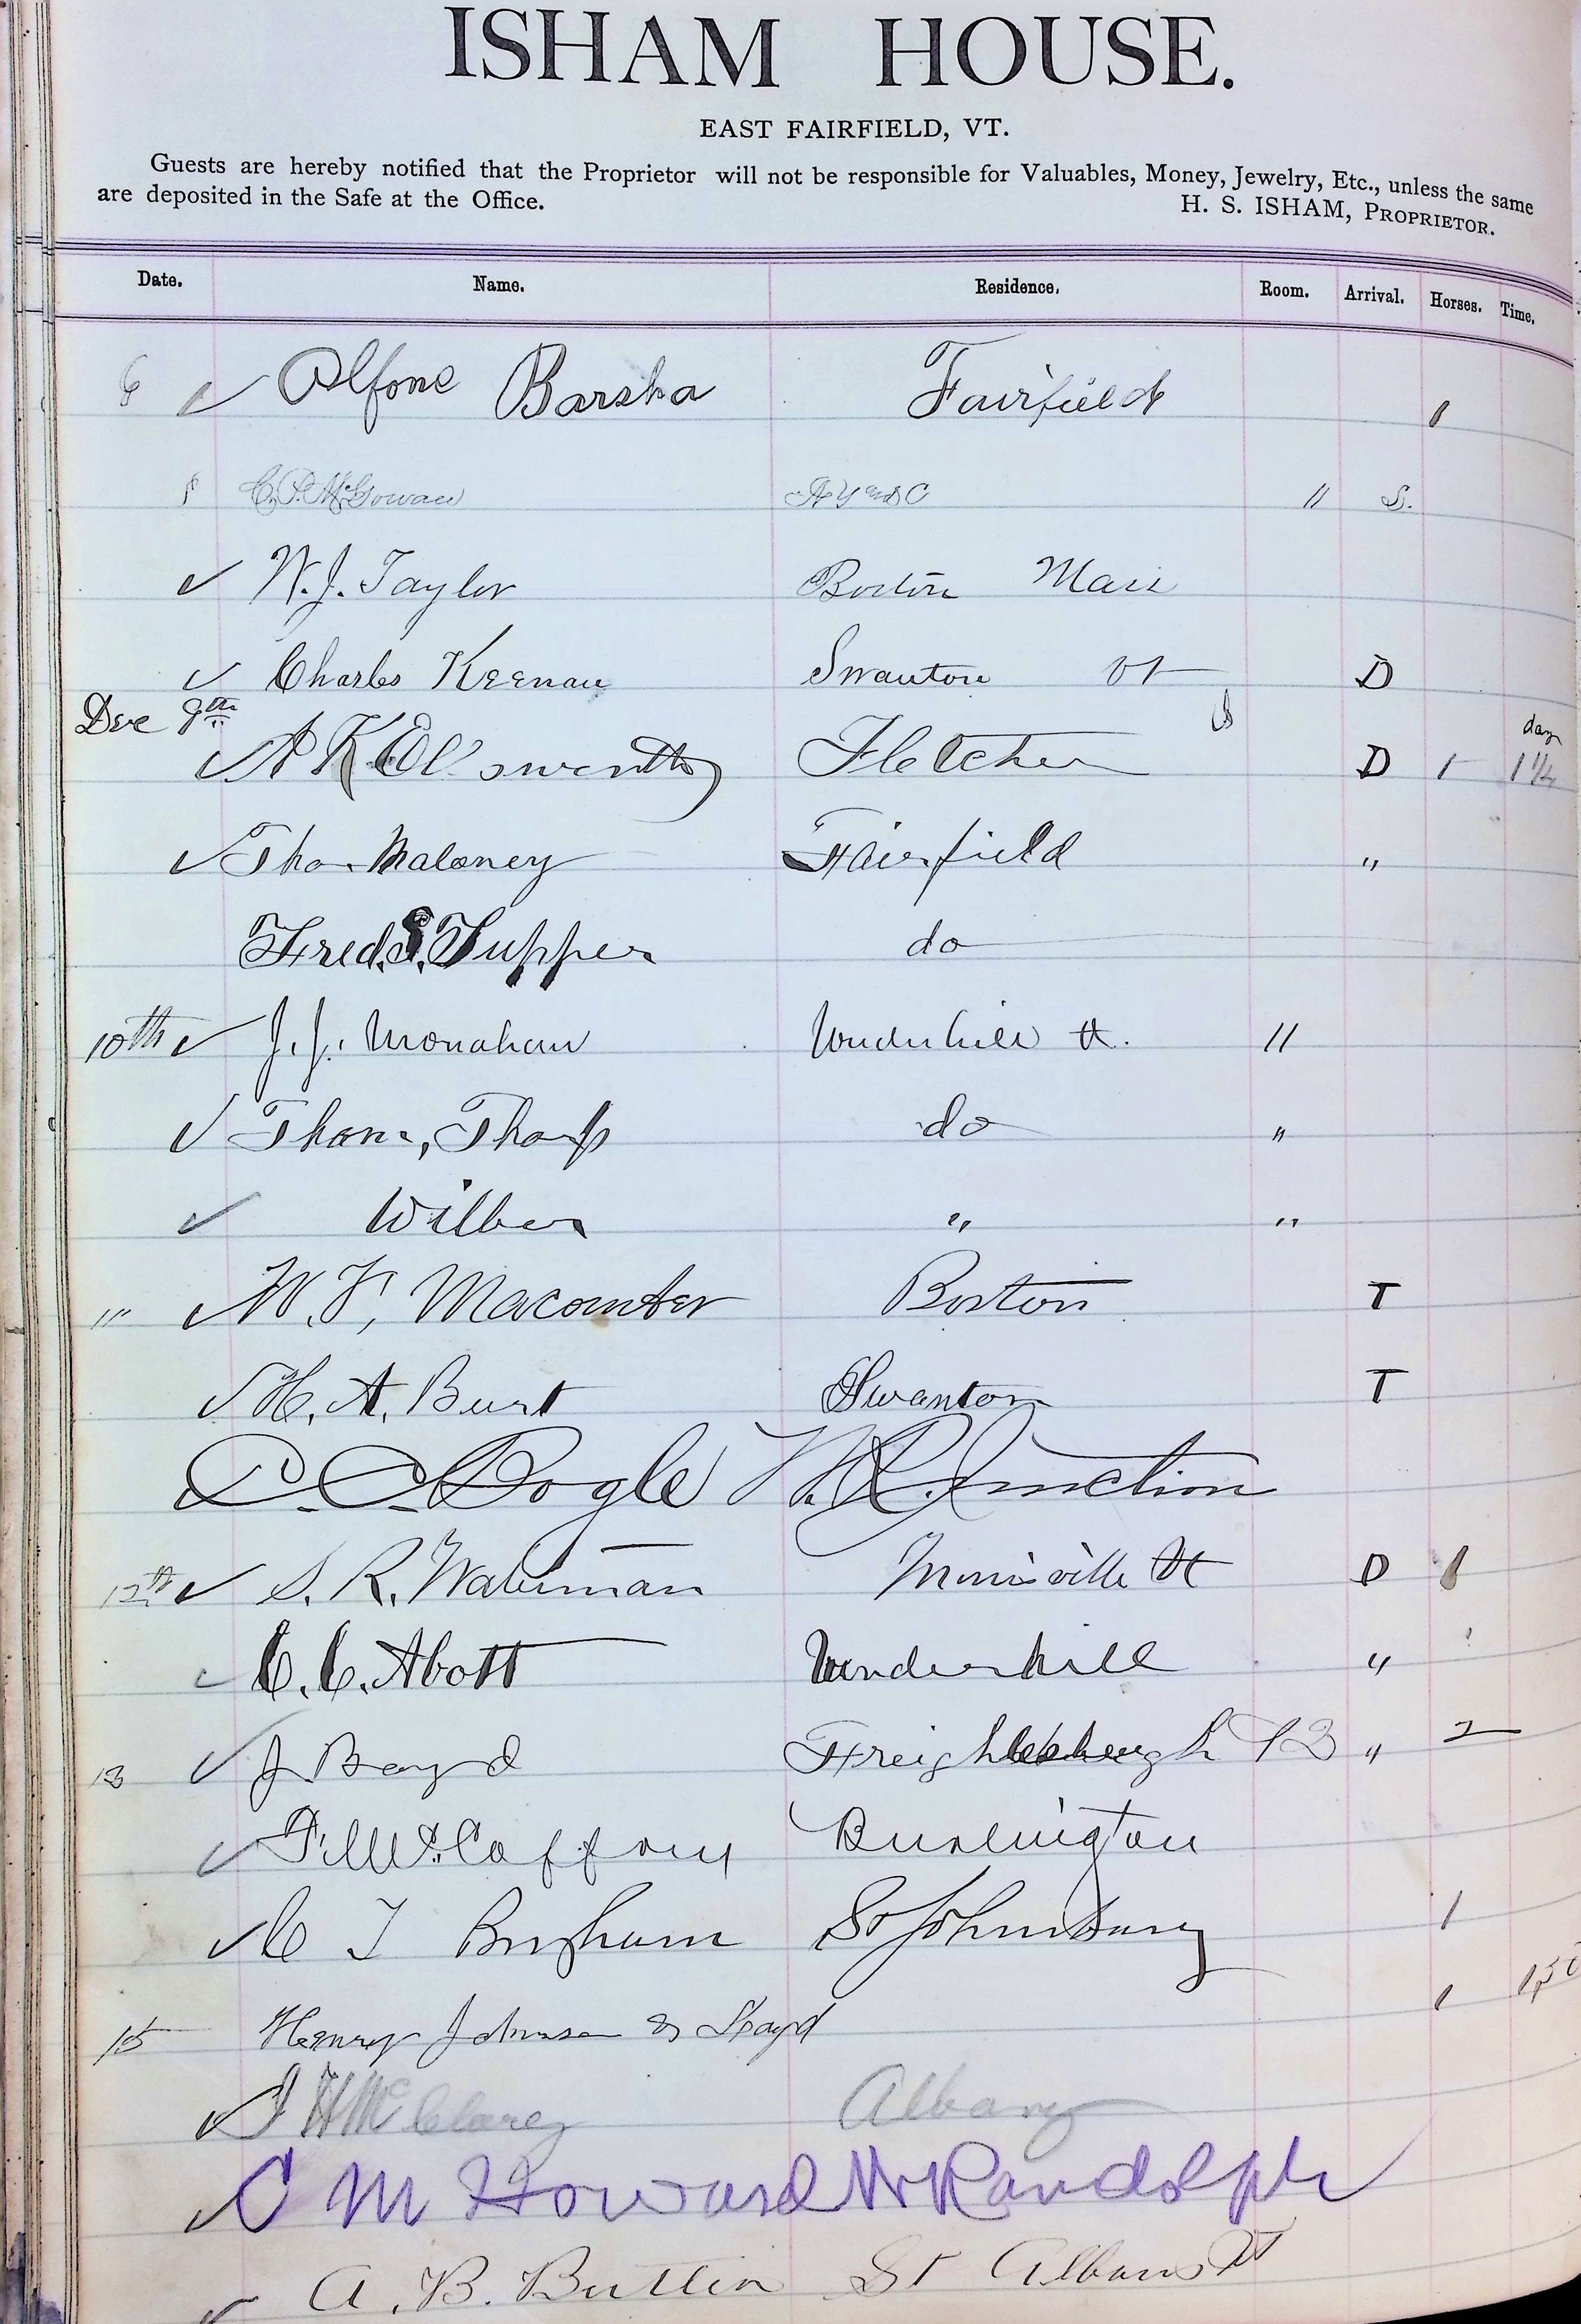 ISHAM HOUSE.
EAST FAIRFIELD, VT.
Guests are hereby notified that the Proprietor will not be responsible for Valuables, Money, Jewelry, Etc., unless the same
are deposited in the Safe at the Office.
H. S. ISHAM, PROPRIETOR.
Date. Name. Residence. Room. Arrival. Horses. Time.
6 ✓ Alfone Barsha Fairfield 1
8 C. P. McGowan " S.
✓ W. J. Taylor Boston Mass
✓ Charles Keenan Swanton Vt D
Dec 9th
day
✓ A K Ellsworth Fletcher D 1 1 1/4
✓ Tho Maloney Fairfield "
Fred. S. Tupper do
10th ✓ J. J. Monahan Underhill Vt. "
✓ Thom, Tharp do "
✓ Wilber " "
11 ✓ W. F. Macomber Boston T
✓ H. A. Burt Swanton T
C. C. Bogle W. R. Junction
12th ✓ S. R. Waterman Morrisville Vt D 1
✓ C. C. Abott Underhill "
13 ✓ J Boyd " 2
✓ McCaffrey Burlington
✓ C T Brigham St Johnsbury 1
1
15 Henry Johnson & Boyd
✓ McClarey Albany
✓ C M Howard W Randolph
✓ A. B. Butler St Albans Vt